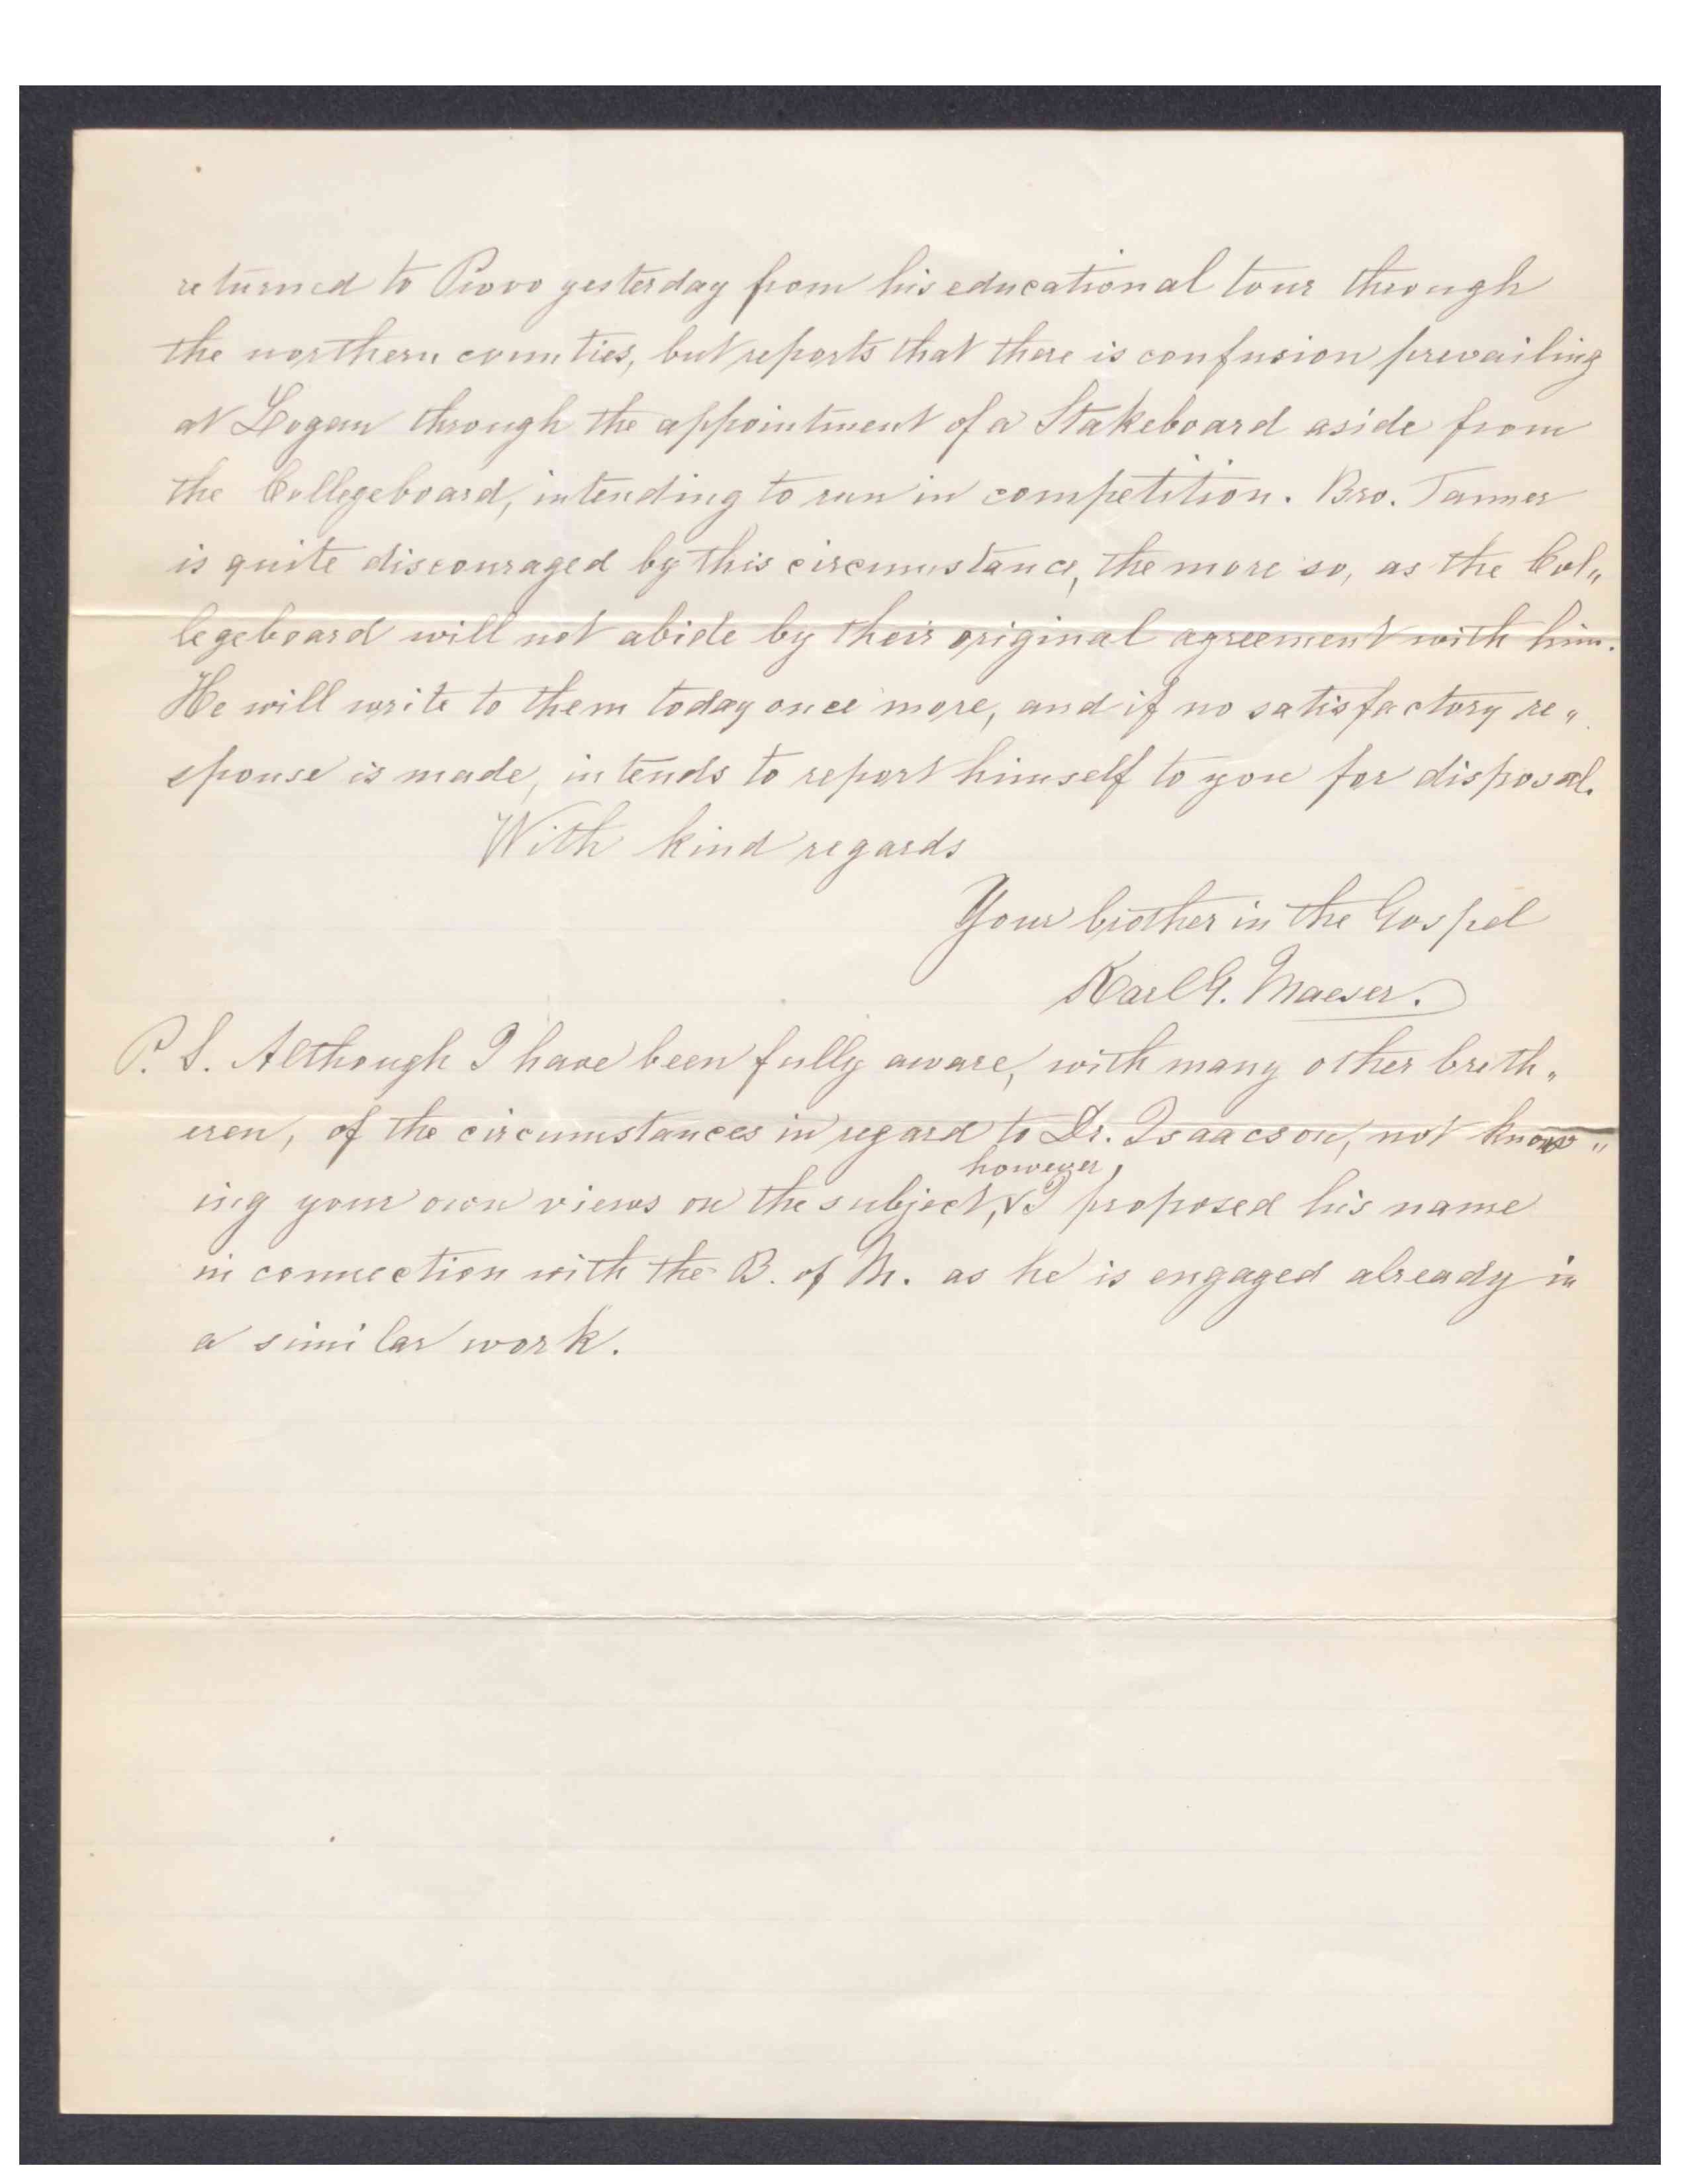 returned to Provo yesterday from his educational tour through
the northern counties, but reports that there is confusion prevailing
at Logan through the appointment of a Stakeboard aside from
the Collegeboard, intending to run in competition. Bro. Tanner
is quite discouraged by this circumstance, the more so, as the Col„
legeboard will not abide by their original agreement with him.
He will write to them today once more, and if no satisfactory re„
sponse is made, intends to report himself to you for disposal.
With kind regards
Your brother in the Gospel
Karl G. Maeser.
P. S. Although I have been fully aware, with many other breth„
eren, of the circumstances in regard to Dr. Isaacson, not know„
however,
ing your own views on the subject, I proposed his name
in connection with the B. of M. as he is engaged already in
a similar work.